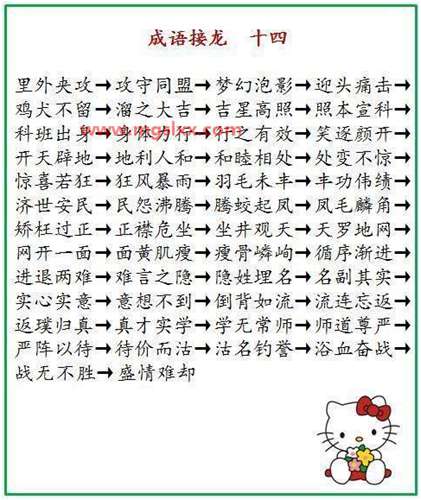 成语接龙 十四
里外夹攻→攻守同盟→梦幻泡影→迎头痛击→
鸡犬不留→溜之大吉→吉星高照→照本宣科→
科班出身→身体力行→行之有效→笑逐颜开→
开天辟地→地利人和→和睦相处→处变不惊→
惊喜若狂→狂风暴雨→羽毛未丰→丰功伟绩→
济世安民→民怨沸腾→腾蛟起凤→凤毛麟角→
矫枉过正→正襟危坐→坐井观天→天罗地网→
网开一面→面黄肌瘦→瘦骨嶙峋→循序渐进→
进退两难→难言之隐→隐姓埋名→名副其实→
实心实意→意想不到→倒背如流→流连忘返→
返璞归真→真才实学→学无常师→师道尊严→
严阵以待→待价而沽→沽名钓誉→浴血奋战→
战无不胜→盛情难却